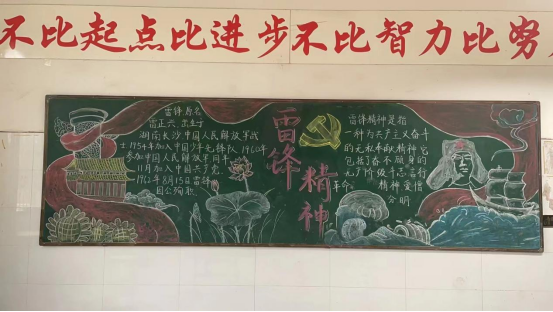 不比起点比进步
不比智力比努
雷锋原名
雷正兴 出生于
湖南长沙中国人民解放军战
士1954年加入中国少年先锋队 1960年
参加中国人民解放军同年
11月加入中国共产党
1962年8月15日雷锋
因公殉职
雷锋
精神
雷锋精神是指
一种为共产主义奋斗
的无私奉献精神它
包括奋不顾身的
无产阶级斗志言行
革命 精神爱憎
分明